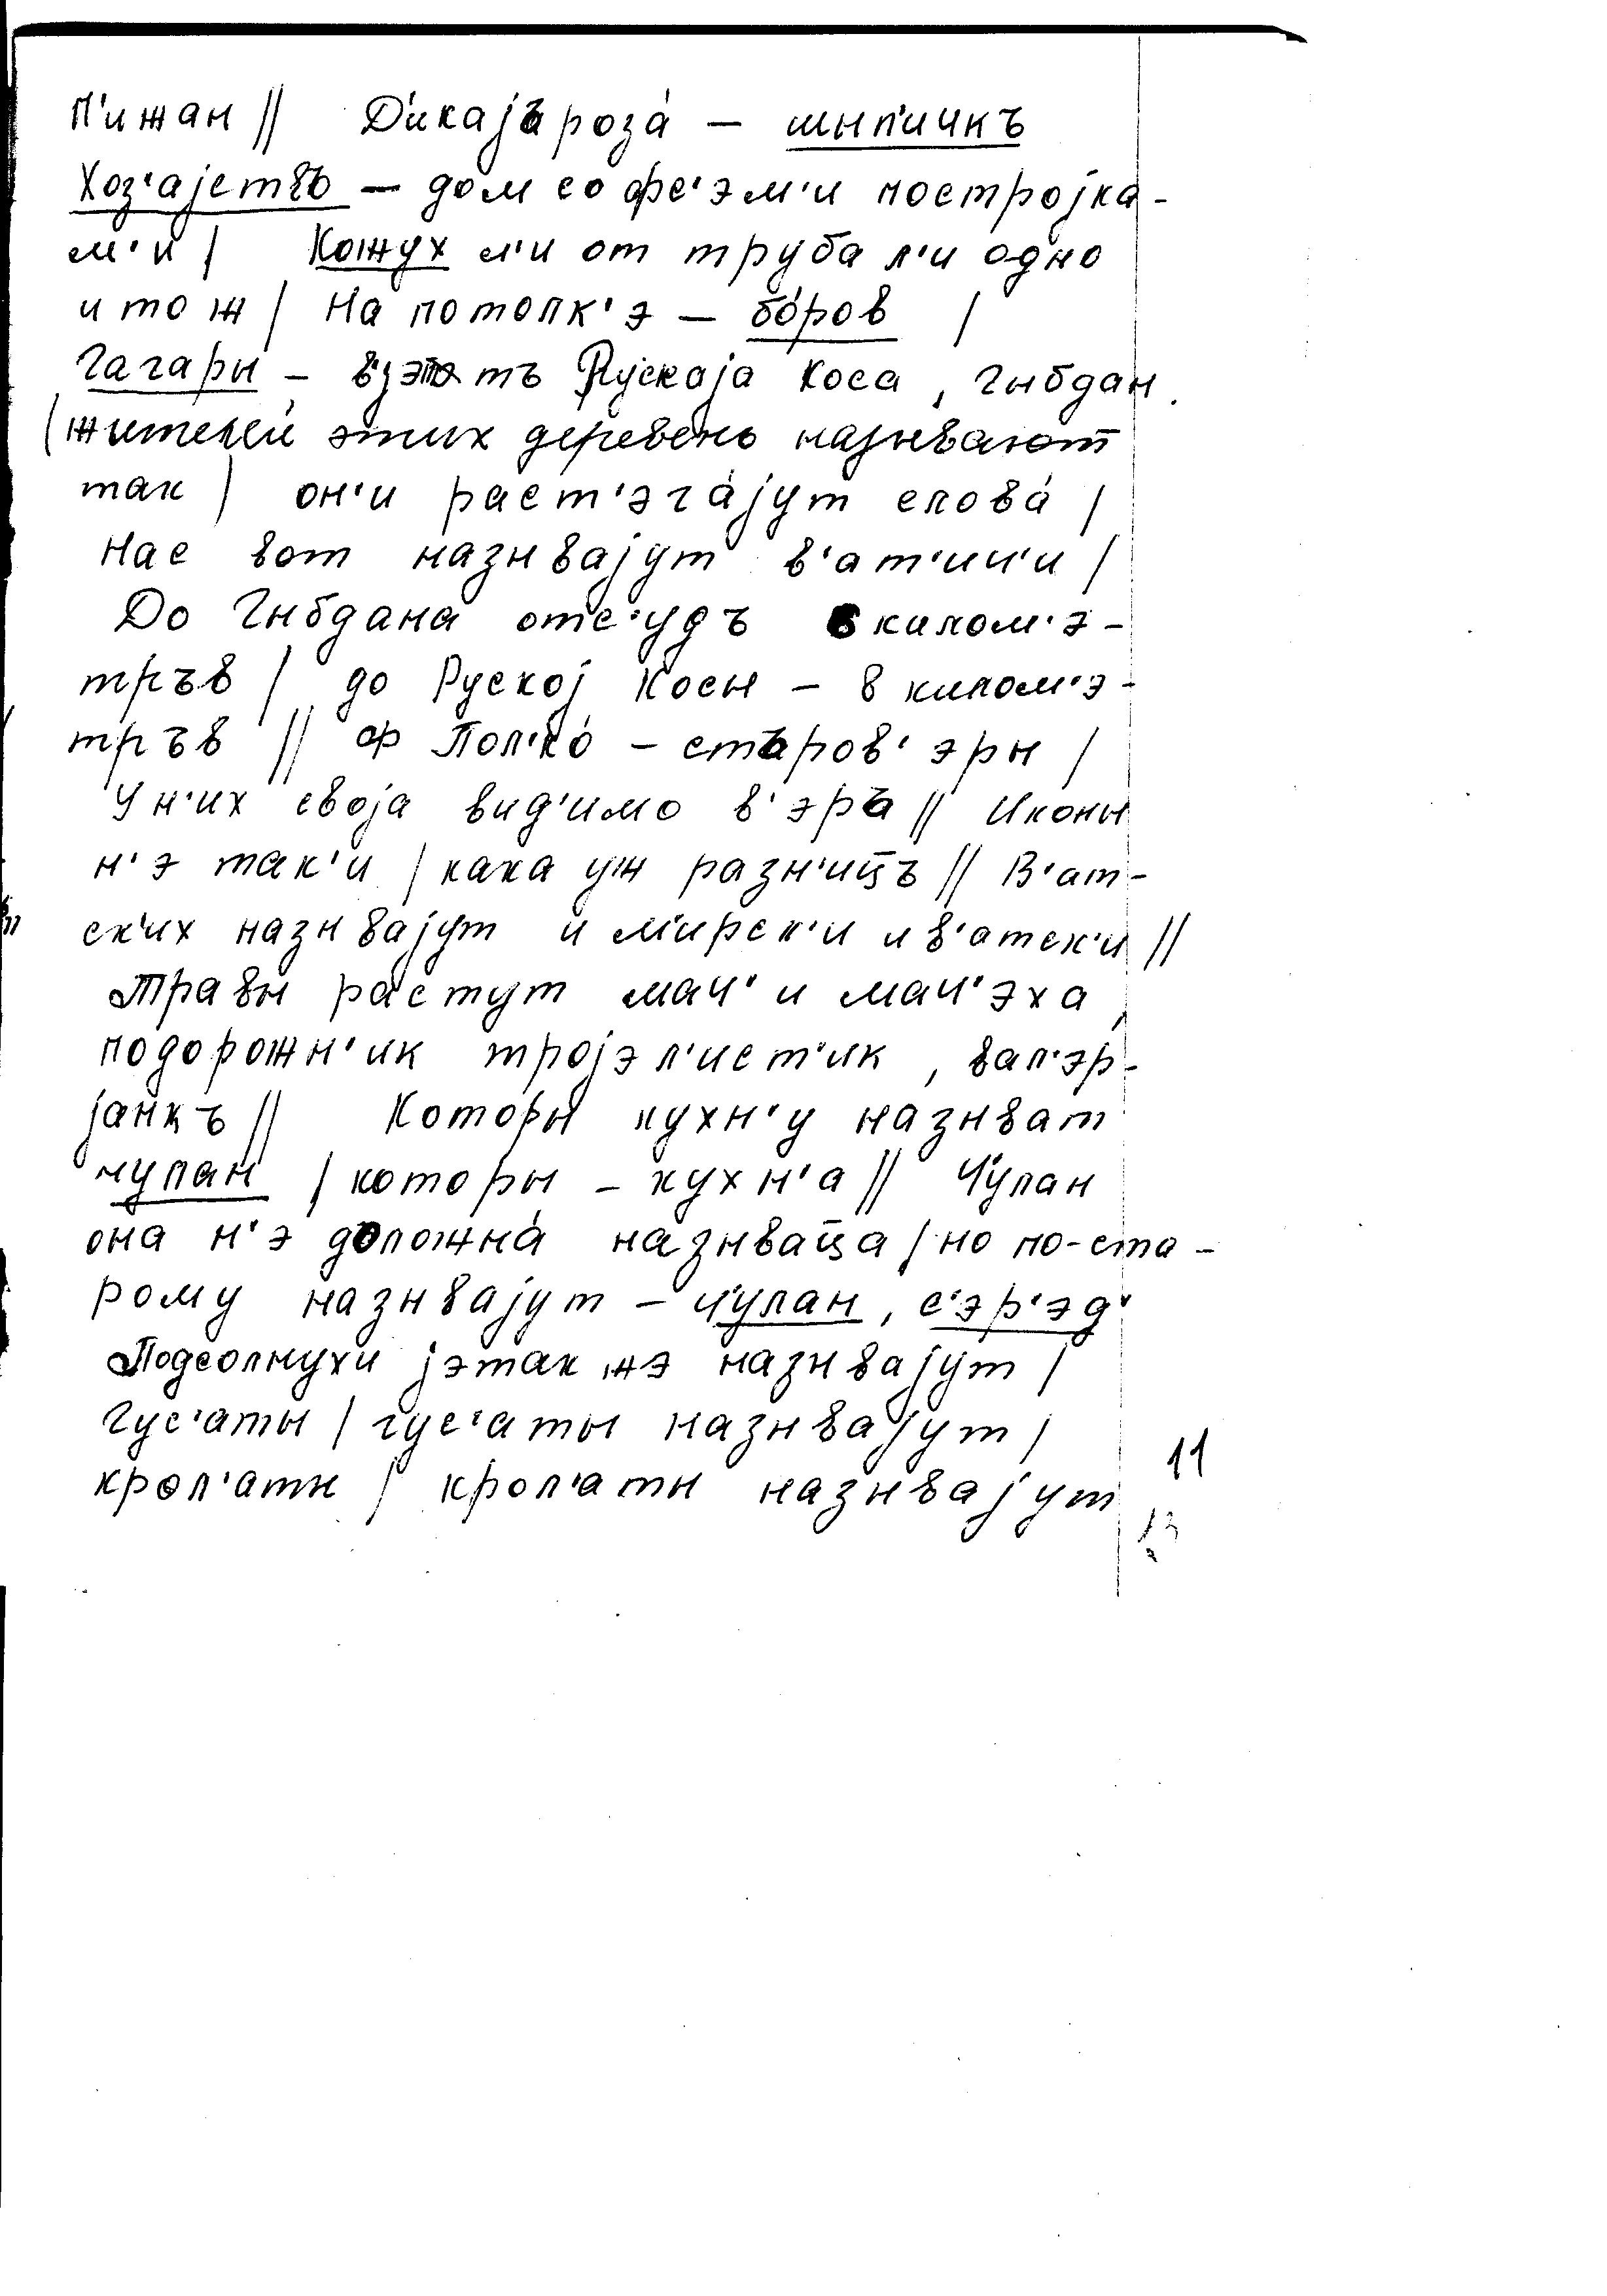 п'ижан // Д'икаjъ роза́ — шып'ичкъ
Хоз'аjствъ — дом со фс'эм'и построjка-
м'и / Кожух л'и от труба л'и одно
и то ж / На потолк'э — бо́ров /
Гагары — Рускаjа Коса, Гыбдан.
(жителей этих деревень называют
так / он'и раст'эга́jут слова́ /
Нас вот называjут в'ат'ич'и /
До Гыбдана отс'удъ 6 килом'э-
тръв / до Рускоj Косы — 8 килом'э-
тръв // Ф Пол'ко́ — старов'эры /
У н'их своjа вид'имо в'эра // Иконы
н'э так'и / кака уж разн'ицъ // В'ат-
ск'их называjут и м'ирск'и и в'атск'и //
Травы растут мач' и мач'эха,
подорожн'ик троjэл'ист'ик, вал'эр-
jанкъ // Которы кухн'у называт
чулан / которы — кухн'а // Ч'улан
она н'э должна́ называца / но по-ста-
рому называjут — ч'улан, с'эр'эд'
Подсолнухи jэтак жэ называjут /
Гус'аты / гус'аты называjут /
крол'аты / крол'аты называjут
11
13